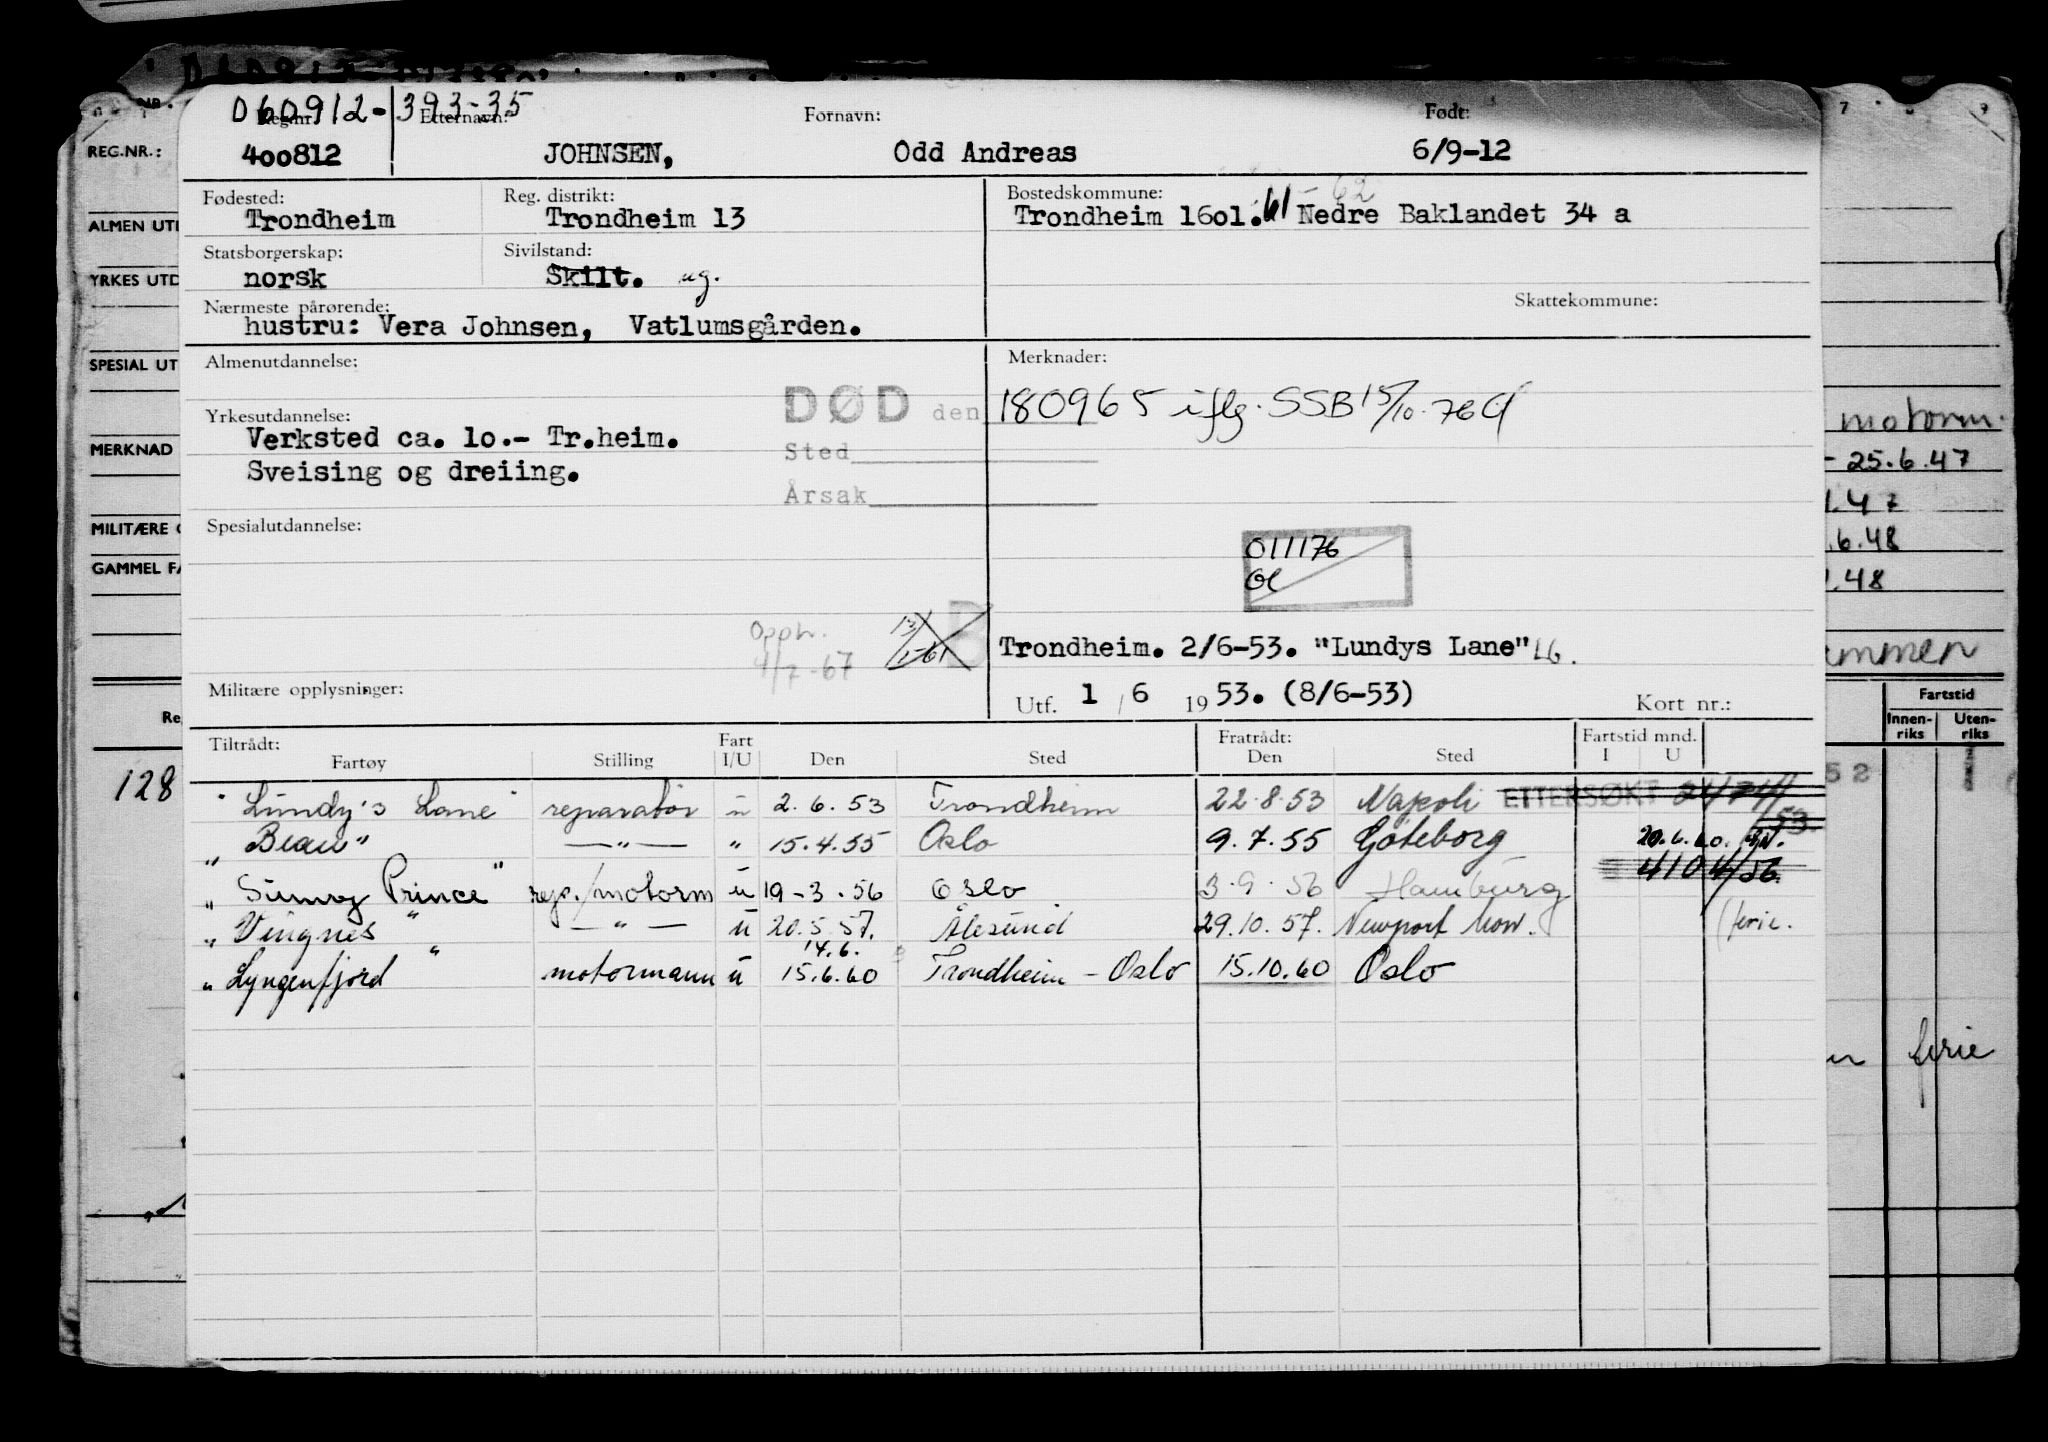 060912-393-35
Regnr. Etternavn: Fornavn: Født:
400812 JOHNSEN, Odd Andreas 6/9-12
Fødested: Reg. distrikt: Bostedskommune: 62
Trondheim Trondheim 13 Trondheim 16o1. 61 Nedre Baklandet 34 a
Statsborgerskap: Sivilstand:
norsk Skilt. ug.
Nærmeste pårørende: Skattekommune:
hustru: Vera Johnsen, Vatlumsgården.
Almenutdannelse: Merknader:
DØD den 180965 iflg. SSB 15/10-76
Yrkesutdannelse:
Verksted ca. 1o.- Tr.heim.
Sted
Sveising og dreiing.
Årsak
Spesialutdannelse:
011176
B
Opph. 4/7-67
Trondheim. 2/6-53. "Lundys Lane" LG.
Militære opplysninger: Utf. 1 / 6 19 53. (8/6-53) Kort nr.:
Tiltrådt: Fart Fratrådt: Fartstid mnd.
Fartøy Stilling I/U Den Sted Den Sted I U
"Lundy's Lane" reparatør u 2.6.53 Trondheim 22.8.53 Napoli ETTERSØKT 53.
"Beau" —"— " 15.4.55 Oslo 9.7.55 Göteborg 20.6.60.
"Sunny Prince" rep./motorm u 19-3.56 Oslo 3.9.56 Hamburg
"Vingnes" —"— u 20.5.57. Ålesund 29.10.57. Newport Mon. (ferie.
14.6.
"Lyngenfjord" motormann u 15.6.60 Trondheim - Oslo 15.10.60 Oslo
REG.NR.:
ALMEN UTD
YRKES UTD
SPESIAL UT
MERKNAD
MILITÆRE O
GAMMEL FA
128
7
9
motorm.
- 25.6.47
.6.48
.48
Fartstid
Innen-riks Uten-riks
52
ferie